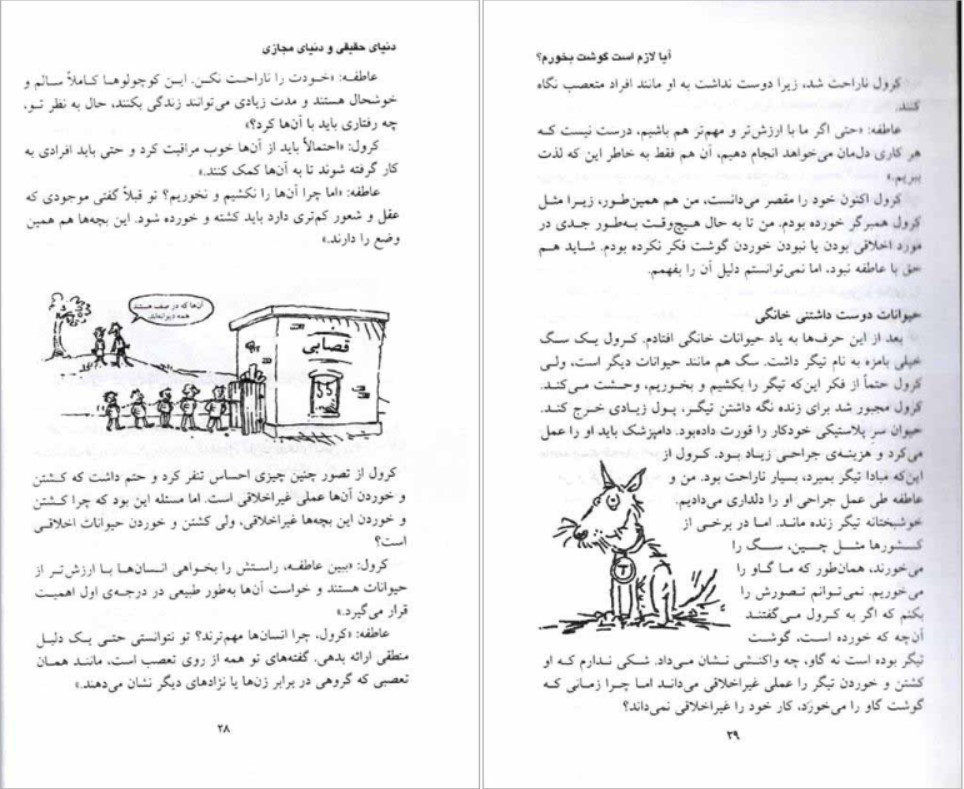 دنیای حقیقی و دنیای مجازی
عاطفه: «خودت را ناراحت نکن. این کوچولوها کاملاً سالم و
خوشحال هستند و مدت زیادی می‌توانند زندگی بکنند، حال به نظر تو،
چه رفتاری باید با آن‌ها کرد؟»
کرول: «احتمالاً باید از آن‌ها خوب مراقبت کرد و حتی باید افرادی به
کار گرفته شوند تا به آن‌ها کمک کنند.»
عاطفه: «اما چرا آن‌ها را نکشیم و نخوریم؟ تو قبلاً گفتی موجودی که
عقل و شعور کم‌تری دارد باید کشته و خورده شود. این بچه‌ها هم همین
وضع را دارند.»
آن‌ها که در صف هستند
همه دیوانه‌اند.
قصابی
کرول از تصور چنین چیزی احساس تنفر کرد و حتم داشت که کشتن
و خوردن آن‌ها عملی غیراخلاقی است. اما مسئله این بود که چرا کشتن
و خوردن این بچه‌ها غیراخلاقی، ولی کشتن و خوردن حیوانات اخلاقی
است؟
کرول: «ببین عاطفه، راستش را بخواهی انسان‌ها با ارزش‌تر از
حیوانات هستند و خواست آن‌ها به‌طور طبیعی در درجه‌ی اول اهمیت
قرار می‌گیرد.»
عاطفه: «کرول، چرا انسان‌ها مهم‌ترند؟ تو نتوانستی حتی یک دلیل
منطقی ارائه بدهی. گفته‌های تو همه از روی تعصب است، مانند همان
تعصبی که گروهی در برابر زن‌ها یا نژادهای دیگر نشان می‌دهند.»
۲۸
آیا لازم است گوشت بخورم؟
کرول ناراحت شد، زیرا دوست نداشت به او مانند افراد متعصب نگاه
کنند.
عاطفه: «حتی اگر ما با ارزش‌تر و مهم‌تر هم باشیم، درست نیست که
هر کاری دل‌مان می‌خواهد انجام دهیم، آن هم فقط به خاطر این که لذت
ببریم.»
کرول اکنون خود را مقصر می‌دانست، من هم همین‌طور، زیرا مثل
کرول همبرگر خورده بودم. من تا به حال هیچ‌وقت به‌طور جدی در
مورد اخلاقی بودن یا نبودن خوردن گوشت فکر نکرده بودم. شاید هم
حق با عاطفه نبود، اما نمی‌توانستم دلیل آن را بفهمم.
حیوانات دوست داشتنی خانگی
بعد از این حرف‌ها به یاد حیوانات خانگی افتادم. کرول یک سگ
خیلی بامزه به نام تیگر داشت. سگ هم مانند حیوانات دیگر است، ولی
کرول حتماً از فکر این‌که تیگر را بکشیم و بخوریم، وحشت می‌کند.
کرول مجبور شد برای زنده نگه داشتن تیگر، پول زیادی خرج کند.
حیوان سر پلاستیکی خودکار را قورت داده‌بود. دامپزشک باید او را عمل
می‌کرد و هزینه‌ی جراحی زیاد بود. کرول از
این‌که مبادا تیگر بمیرد، بسیار ناراحت بود. من و
عاطفه طی عمل جراحی او را دلداری می‌دادیم.
خوشبختانه تیگر زنده ماند. اما در برخی از
کشورها مثل چین، سگ را
می‌خورند، همان‌طور که ما گاو را
می‌خوریم. نمی‌توانم تصورش را
بکنم که اگر به کرول می‌گفتند
آن‌چه که خورده است، گوشت
تیگر بوده است نه گاو، چه واکنشی نشان می‌داد. شکی ندارم که او
کشتن و خوردن تیگر را عملی غیراخلاقی می‌داند اما چرا زمانی که
گوشت گاو را می‌خورد، کار خود را غیراخلاقی نمی‌داند؟
T
۲۹